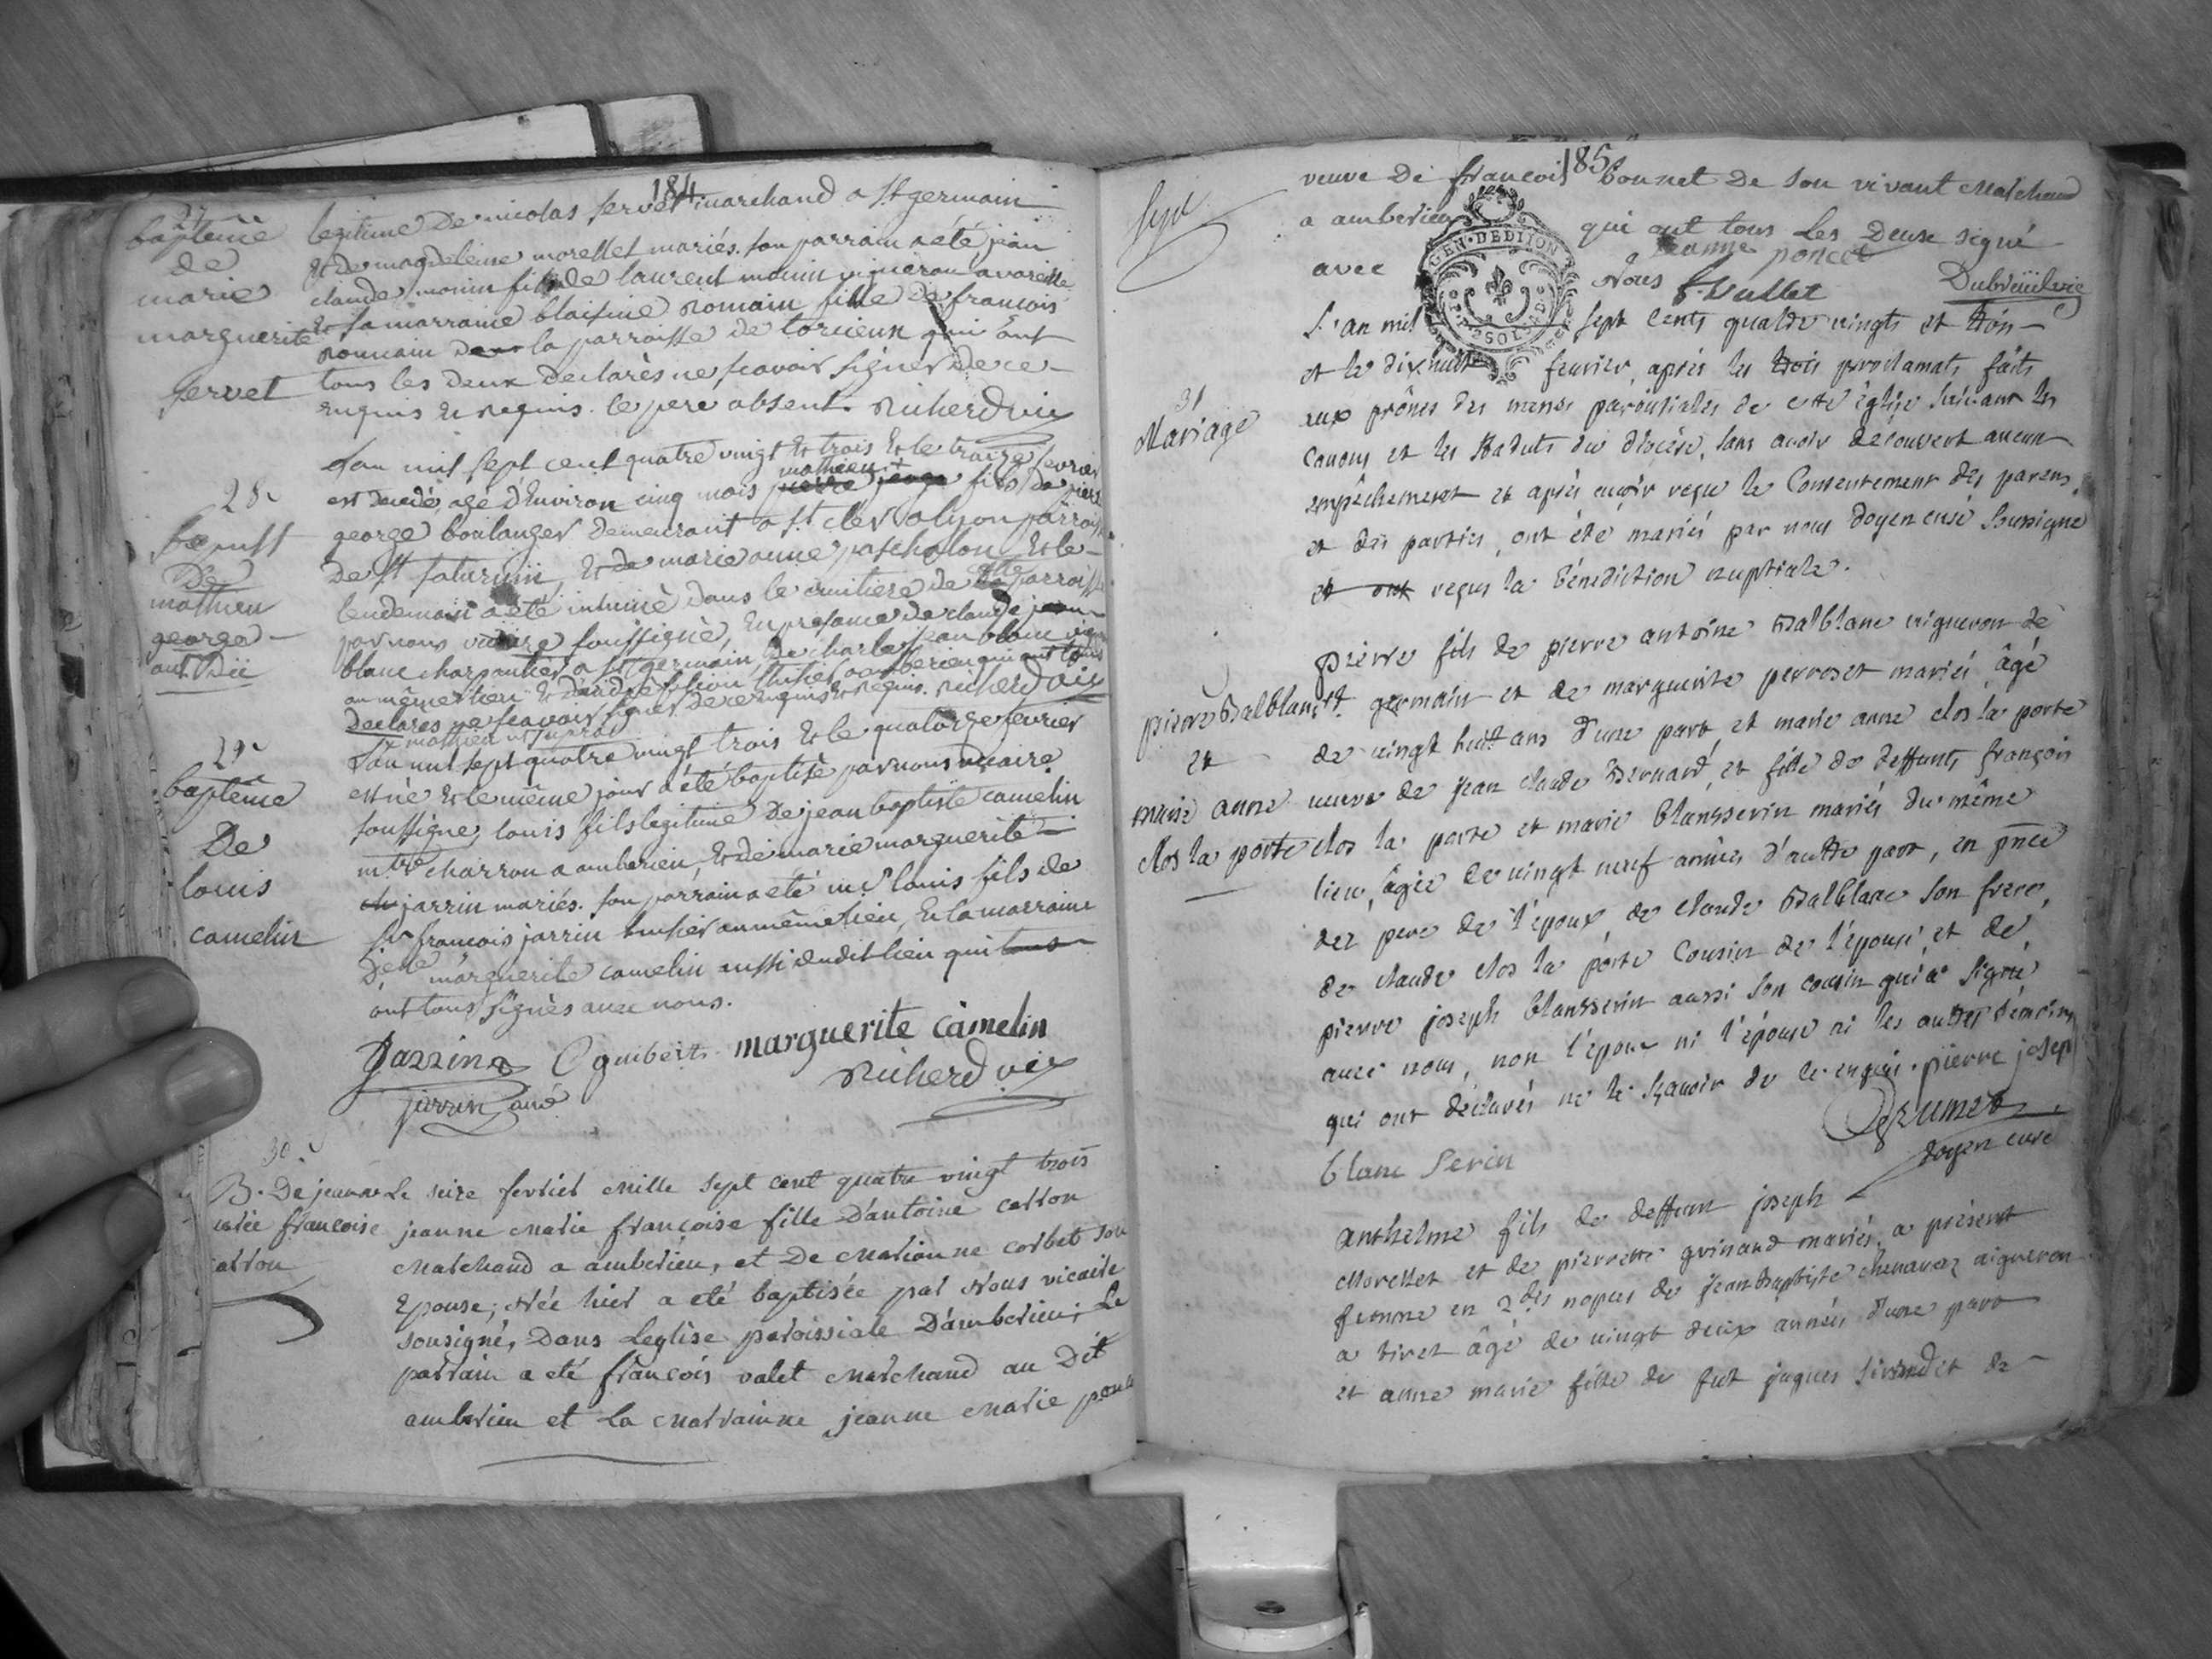 184
27
baptême
de
marie
marguerite
servet
legitime de nicolas servet marchand a st germain
et de magdeleine morellet mariés. son parrain a été jean
claude monin fils de laurent monin vigneron a vareille
et sa marraine blaisine romain fille de francois
romain de la parroisse de torcieux qui ont
tous les deux declarès ne scavoir signer de ce
enquis et requis. le pere absent. Richerd vic
28
De
mathieu
george
ant. Dii
L'an mil sept cent quatre vingt et trois et le traize fevrier
est decedé, agé d'environ cinq mois mathieu fils de pierre
george boulanger demeurant a st cler a lyon parroisse
de st saturnin, et de marie anne paschalon et le
lendemain a été inhumè dans le cimitiere de parroisse
par nous vicaire soussignè, en presance de claude
blanc charpantier a st germain, de charles jean blanc
au même lieu qui ont tous
declarés ne scavoir signer de ce enquis et requis. richerd vic
mathieu ut supra
29
baptême
De
louis
camelin
L'an mil sept quatre vingt trois et le quatorze fevrier
est nè et le même jour a été baptisè par nous vicaire
soussigne, louis fils legitime de jean baptiste camelin
mtre charron a amberieu, et de marie marguerite
jarrin mariés. son parrain a eté mre louis fils de
sr francois jarrin au même lieu, et la marraine
delle marguerite camelin aussi dudit lieu qui
ont tous signès avec nous.
Jarrin Oguibert marguerite camelin
jarrin Richerd vic
30
B. De jeanne
marie francoise
carron
Le seize fevrier mille sept cent quatre vingt trois
jeanne marie francoise fille D'antoine carron
marchand a amberieu, et De marianne corbet son
Epouse; née hier a eté baptisée par nous vicaire
sousigné, Dans Leglise paroissiale D'amberieu; Le
parrain a eté francois valet marchand au Dit
amberieu et La marrainne jeanne marie poncet
185
veuve De francois bonnet De son vivant marchand
a amberieu qui ont tous Les Deux signé
avec Nous
Jeanne poncet
f. vallet Dubreüil vic
GEN · DEDIION
31
Mariage
pierre Balblanc
et
marie anne
clos la porte
L'an mil sept cents quatre vingts et trois
et le dix huit fevrier, après les trois proclamats faits
aux prônes des messes paroissiales de cette église suivant les
canons et les statuts du diocèse, sans avoir découvert aucun
empêchement et après avoir reçu le consentement des parens
et des parties, ont été mariés par nous doyen curé soussigné
et ont reçus la bénédiction nuptiale.
pierre fils de pierre antoine Balblanc vigneron de
st. germain et de marguerite perroset mariés, âgé
de vingt huit ans d'une part et marie anne clos la porte
veuve de jean claude Bernard, et fille de deffunts françois
clos la porte et marie blansserin mariés du même
lieu, âgée de vingt neuf années d'autre part, en pnce
des pere de l'époux, de claude Balblanc son frere,
de claude clos la porte cousin de l'épouse, et de
pierre joseph blansserin aussi son cousin qui a signé
avec nous, non l'époux ni l'épouse ni les autres témoins
qui ont déclarés ne le sçavoir de ce enquis. pierre josep
blanc serin
Brumet
doyen curé
Anthelme fils de deffunt joseph
Morellet et de pierrette guinand mariés, a présent
femme en 2des nopces de jean Baptiste chenavaz vigneron
a tiret âgé de vingt deux années d'une part
et anne marie fille de fut jaques et de